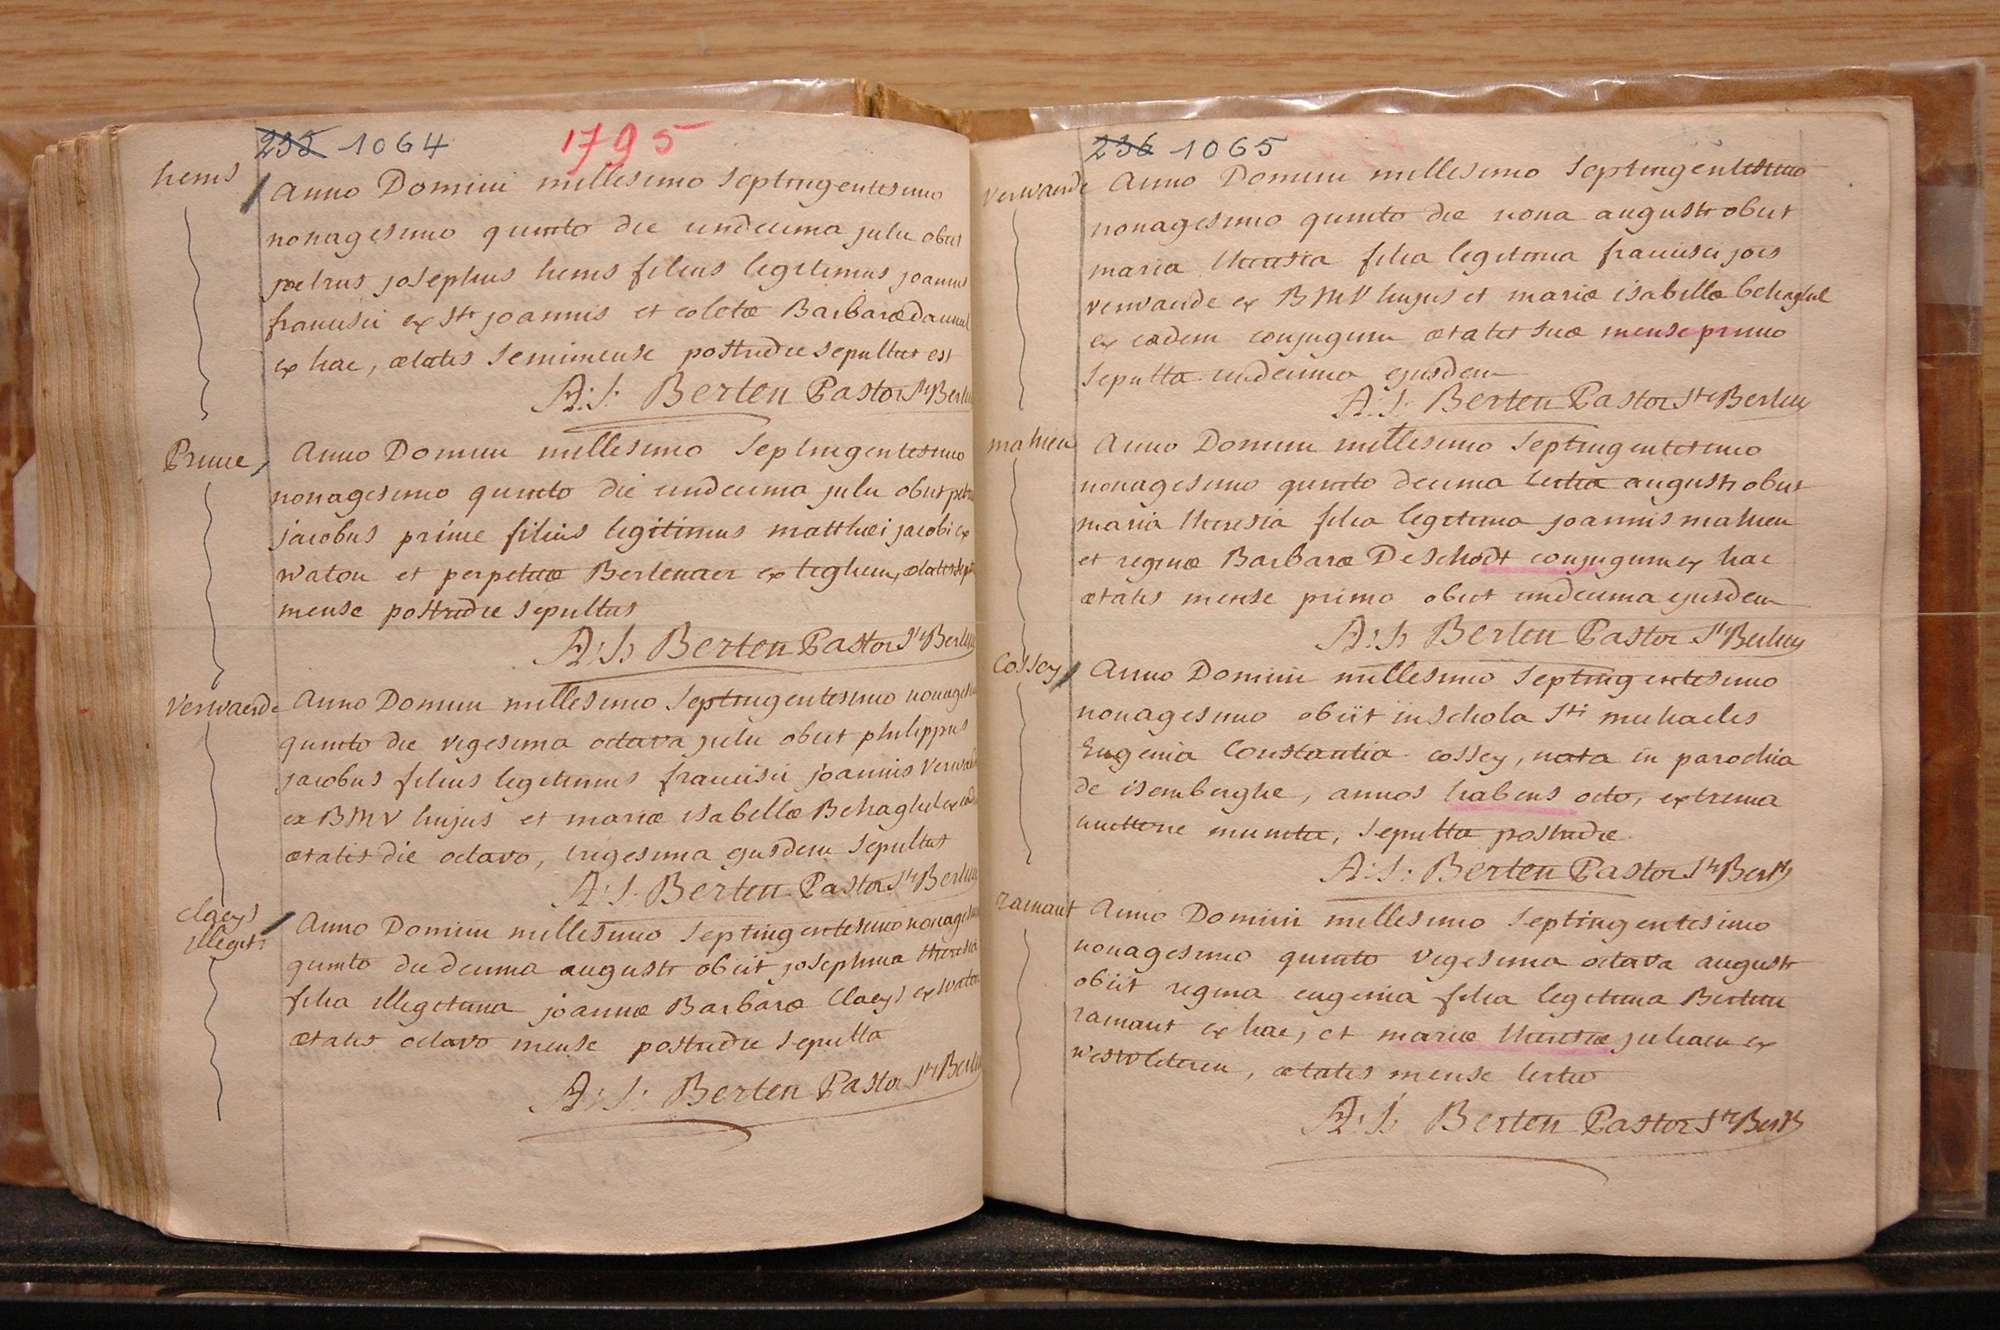 235 1064
1795
hems
Anno Domini millesimo Septingentesimo
nonagesimo quinto die undecima julii obiit
petrus josephus hems filius legitimus joannis
francisci ex sti joannis et coletæ Barbaræ
ex hac, ætatis semimense postridie sepultus est
A: J: Berten Pastor Sti Bertini
Prime,
Anno Domini millesimo Septingentesimo
nonagesimo quinto die undecima julii obiit
jacobus prime filius legitimus matthæi jacobi ex
watou et perpetuæ Bertenaer ex teghem, ætatis
mense postridie sepultus
A: J: Berten Pastor Sti Bertini
Verwaerde
Anno Domini millesimo Septingentesimo
quinto die vigesima octava julii obiit philippus
jacobus filius legitimus francisci joannis
ex BMV hujus et mariæ isabellæ Behaghel
ætatis die octavo, trigesima ejusdem sepultus
A: J: Berten Pastor Sti Bertini
Claeys
illegit:
Anno Domini millesimo Septingentesimo
quinto die decima augusti obiit josephina theresia
filia illegitima joannæ Barbaræ Claeys ex watou
ætatis octavo mense postridie sepulta
A: J: Berten Pastor Sti Bertini
236 1065
verwaerde
Anno Domini millesimo Septingentesimo
nonagesimo quinto die nona augusti obiit
maria theresia filia legitima francisci jois
verwaerde ex BMV hujus et mariæ isabellæ behaghel
ex eadem conjugum ætatis suæ mense primo
sepulta undecima ejusdem
A: J: Berten Pastor Sti Bertini
mahieu
Anno Domini millesimo Septingentesimo
nonagesimo quinto decima tertia augusti obiit
maria theresia filia legitima joannis mahieu
et reginæ Barbaræ De Schodt conjugum ex hac
ætatis mense primo obiit undecima ejusdem
A: J: Berten Pastor Sti Bertini
Cossey
Anno Domini millesimo Septingentesimo
nonagesimo obiit in schola Sti michaelis
Eugenia Constantia cossey, nata in parochia
de isemberghe, annos habens octo, extrema
unctione munita, sepulta postridie
A: J: Berten Pastor Sti Bert
ramaut
Anno Domini millesimo Septingentesimo
nonagesimo quinto vigesima octava augusti
obiit regina eugenia filia legitima Bertini
ramaut ex hac, et mariæ theresiæ juliaen ex
westvleteren, ætatis mense tertio
A: J: Berten Pastor Sti Bert